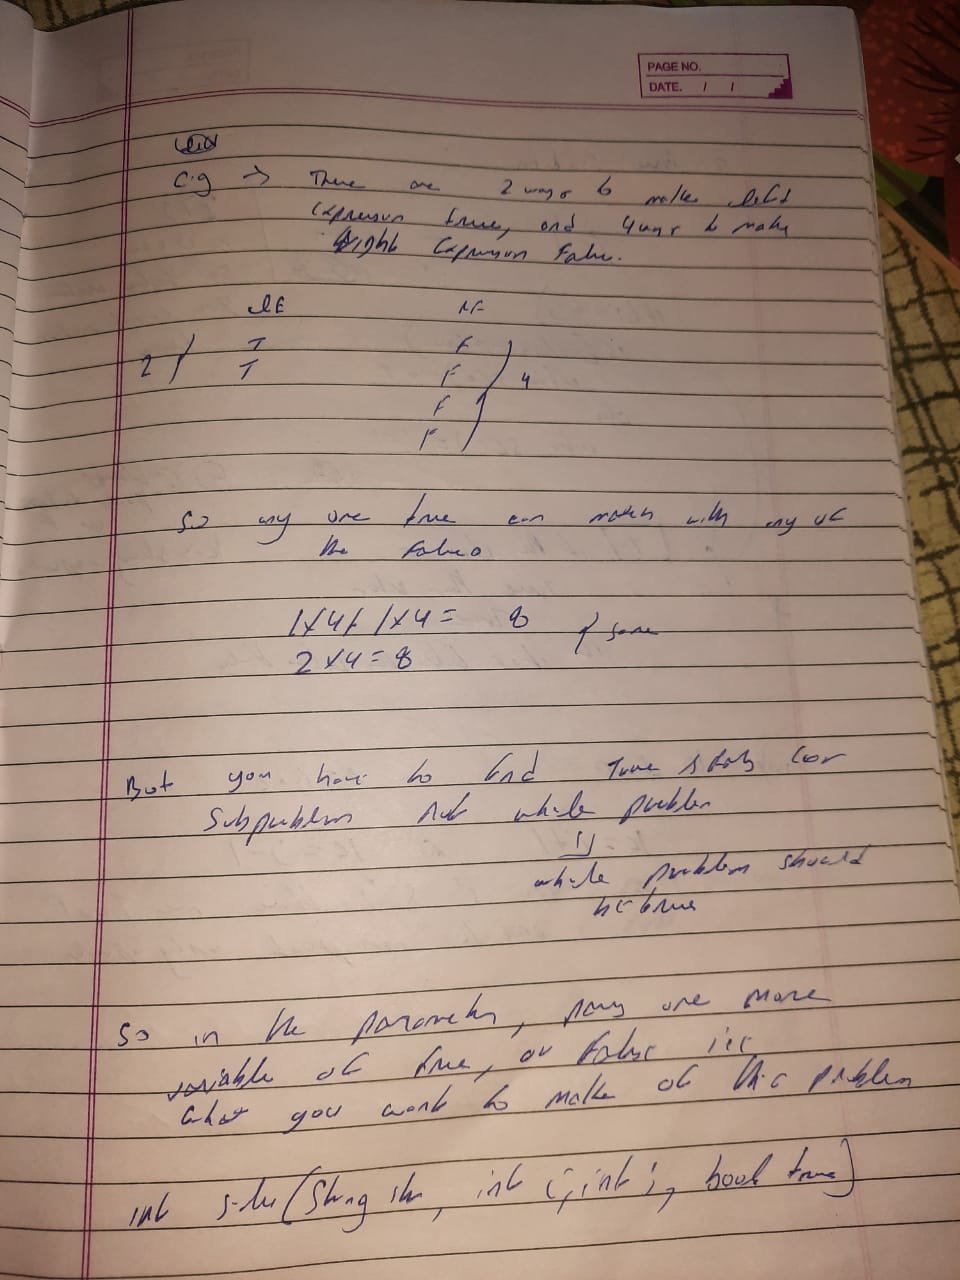 PAGE NO.
DATE. / /
e.g → There are 2 ways to make left
expression true, and 4 ways to make
Right Expression False.
LE RF
T F
2 T F 4
F
F
So any one true can match with any of
the false
1x4+1x4 = 8 } same
2x4=8
But you have to find True & False for
Subproblem not whole problem
whole problem should
be true
So in the parameter, pass one more
variable of true, or false i.e
what you want to make of this problem
int solve(String str, int i, int j, bool true)